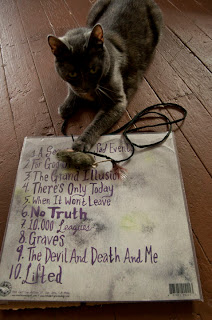 1. A G d Event
2. For Go
3. The Grand Illusion
4. There's Only Today
5 When It Won't Leave
6 No Truth
7 10,000 Leagues
8 Graves
9. The Devil And Death And Me
10. Lifted